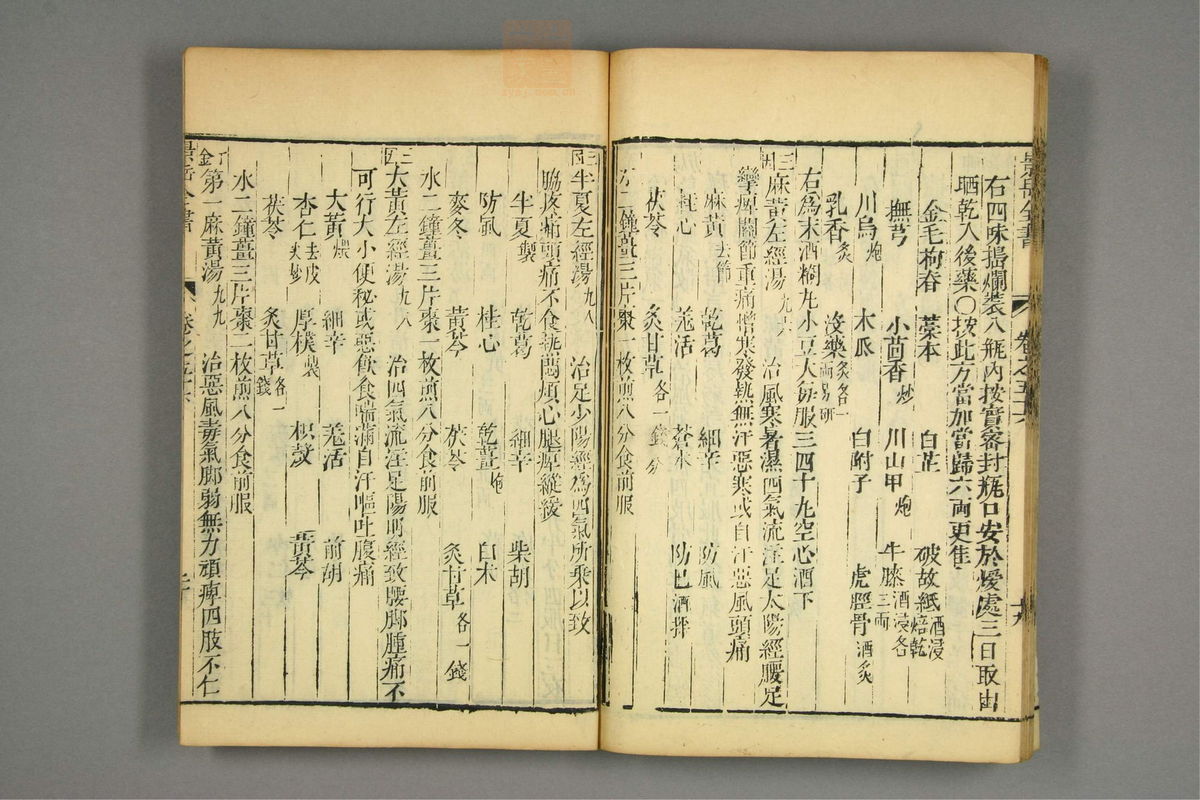 景岳全書 卷之五十六 十九
右四味搗爛裝入瓶內按實密封瓶口安於煖處三日取出
晒乾入後藥○按此方當加當歸六兩更佳
金毛狗脊 藁本 白芷 破故紙酒浸焙乾
撫芎 小茴香炒 川山甲炮 牛膝酒浸各三兩
川烏炮 木瓜 白附子 虎脛骨酒炙
乳香炙 沒藥炙各一兩另研
右爲末酒糊丸小豆大每服三四十丸空心酒下
三因麻黃左經湯九六 治風寒暑濕四氣流注足太陽經腰足
攣痺關節重痛憎寒發熱無汗惡寒或自汗惡風頭痛
麻黃去節 乾葛 細辛 防風
桂心 羌活 蒼朮 防巳酒拌
茯苓 炙甘草各一錢分
水二鐘薑三片棗一枚煎八分食前服
三因半夏左經湯九八 治足少陽經爲四氣所乘以致
脇疼痛頭痛不食熱悶煩心腿痺縱緩
半夏製 乾葛 細辛 柴胡
防風 桂心 乾薑炮 白朮
麥冬 黃芩 茯苓 炙甘草各一錢
水二鐘薑三片棗一枚煎八分食前服
三因大黃左經湯九八 治四氣流注足陽明經致腰脚腫痛不
可行大小便秘或惡飲食喘滿自汗嘔吐腹痛
大黃煨 細辛 羌活 前胡
杏仁去皮尖炒 厚樸製 枳殼 黃芩
茯苓 炙甘草各一錢
水二鐘薑三片棗二枚煎八分食前服
千金第一麻黃湯九九 治惡風毒氣脚弱無力頑痺四肢不仁
景岳全書 卷之五十六 二十